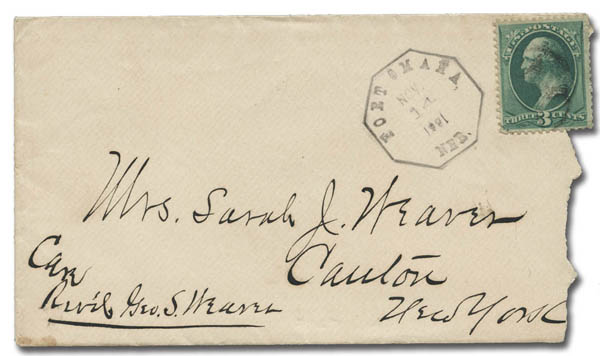 U.S. POSTAGE
THREE 3 CENTS
FORT OMAHA,
NOV.
1881
NEB.
Mrs. Sarah J. Weaver
Canton
New York
Care
Rev'd. Geo. S. Weaver